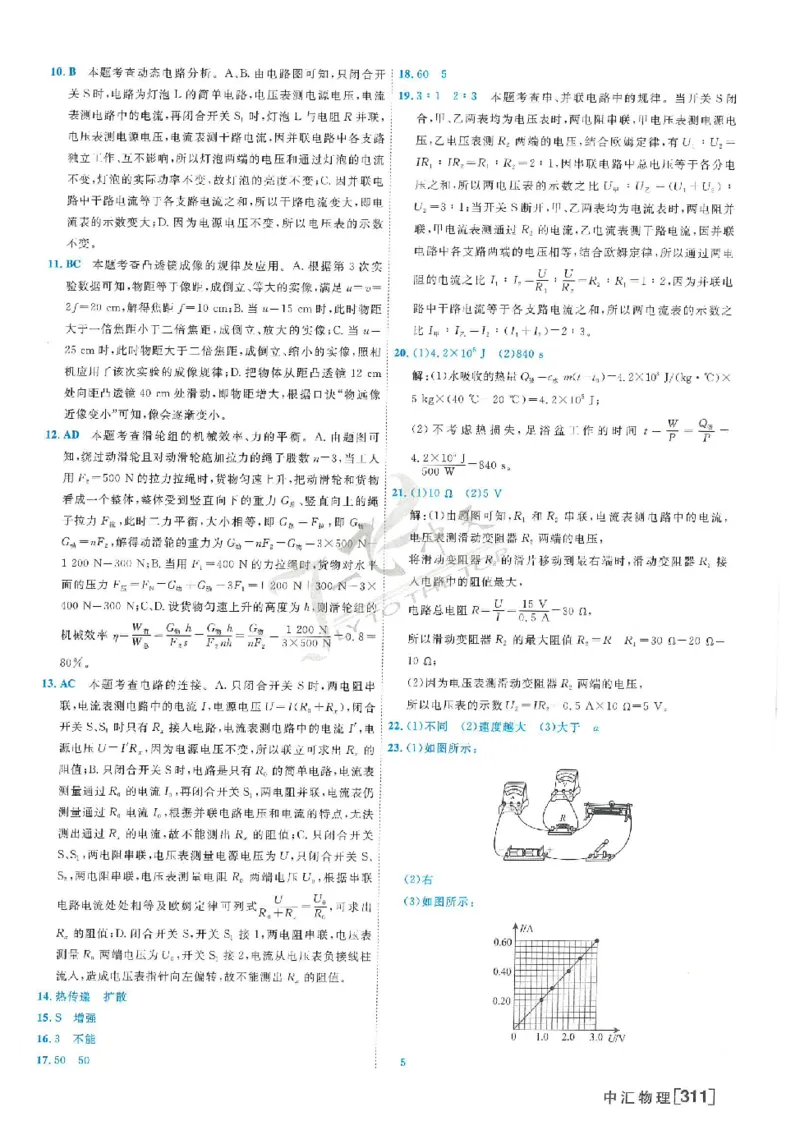 10.B 本题考查动态电路分析。A、B.由电路图可知,只闭合开
关S时,电路为灯泡L的简单电路,电压表测电源电压,电流
表测电路中的电流,再闭合开关S₁时,灯泡L与电阻R并联,
电压表测电源电压,电流表测干路电流,因并联电路中各支路
独立工作、互不影响,所以灯泡两端的电压和通过灯泡的电流
不变,灯泡的实际功率不变,故灯泡的亮度不变;C.因并联电
路中干路电流等于各支路电流之和,所以干路电流变大,即电
流表的示数变大;D.因为电源电压不变,所以电压表的示数
不变。
11.BC 本题考查凸透镜成像的规律及应用。A.根据第3次实
验数据可知,物距等于像距,成倒立、等大的实像,满足u=v=
2f=20 cm,解得焦距f=10 cm;B.当u=15 cm时,此时物距
大于一倍焦距小于二倍焦距,成倒立、放大的实像;C.当u=
25 cm时,此时物距大于二倍焦距,成倒立、缩小的实像,照相
机应用了该次实验的成像原理;D.把物体从距凸透镜12 cm
处向距凸透镜40 cm处滑动,即物距增大,根据口诀“物远像
近像变小”可知,像会逐渐变小。
12.AD 本题考查滑轮组的机械效率、力的平衡。A.由题图可
知,绕过动滑轮且对动滑轮施加拉力的绳子股数n=3,当工人
用F₂=500 N的拉力拉绳时,货物匀速上升,把动滑轮和货物
看成一个整体,整体受到竖直向下的重力G总、竖直向上的绳
子拉力F绳,此时二力平衡,大小相等,即G总=F绳,即G物+
G动=nF₂,解得动滑轮的重力为G动=nF₂-G物=3×500 N-
1 200 N=300 N;B.当用F₁=400 N的力拉绳时,货物对水平
面的压力F压=FN=G动+G物-3F₁=1 200 N+300 N-3×
400 N=300 N;C、D.设货物匀速上升的高度为h,则滑轮组的
机械效率η=W有/W总=G物h/F₂s=G物h/F₂nh=G物/nF₂=1 200 N/3×500 N=0.8=
80%。
13.AC 本题考查电路的连接。A.只闭合开关S时,两电阻串
联,电流表测电路中的电流I,电源电压U=I(R₀+Rₓ),闭合
开关S、S₁时只有Rₓ接入电路,电流表测电路中的电流I′,电
源电压U=I′Rₓ,因为电源电压不变,所以联立可求出Rₓ的
阻值;B.只闭合开关S时,电路是只有R₀的简单电路,电流表
测量通过R₀的电流I₀,再闭合开关S₁,两电阻并联,电流表仍
测量通过R₀电流I₀,根据并联电路电压和电流的特点,无法
测出通过Rₓ的电流,故不能测出Rₓ的阻值;C.只闭合开关
S、S₁,两电阻串联,电压表测量电源电压为U,只闭合开关S、
S₂,两电阻串联,电压表测量电阻R₀两端电压U₀,根据串联
电路电流处处相等及欧姆定律可列式U/R₀+Rₓ=U₀/R₀,可求出
Rₓ的阻值;D.闭合开关S,开关S₁接1,两电阻串联,电压表
测量R₀两端电压为U₀,开关S₁接2,电流从电压表负接线柱
流入,造成电压表指针向左偏转,故不能测出Rₓ的阻值。
14.热传递 扩散
15.S 增强
16.3 不能
17.50 50
18.60 5
19.3∶1 2∶3 本题考查串、并联电路中的规律。当开关S闭
合,甲、乙两表均为电压表时,两电阻串联,甲电压表测电源电
压,乙电压表测R₂两端的电压,结合欧姆定律,有U₁∶U₂=
IR₁∶IR₂=R₁∶R₂=2∶1,因串联电路中总电压等于各分电
压之和,所以两电压表的示数之比U甲∶U乙=(U₁+U₂)∶
U₂=3∶1;当开关S断开,甲、乙两表均为电流表时,两电阻并
联,甲电流表测通过R₂的电流,乙电流表测干路电流,因并联
电路中各支路两端的电压相等,结合欧姆定律,所以通过两电
阻的电流之比I₁∶I₂=U/R₁∶U/R₂=R₂∶R₁=1∶2,因为并联电
路中干路电流等于各支路电流之和,所以两电流表的示数之
比I甲∶I乙=I₂∶(I₁+I₂)=2∶3。
20.(1)4.2×10⁵ J (2)840 s
解:(1)水吸收的热量Q吸=c水m(t-t₀)=4.2×10³ J/(kg·℃)×
5 kg×(40 ℃-20 ℃)=4.2×10⁵ J;
(2)不考虑热损失,足浴盆工作的时间t=W/P=Q吸/P=
4.2×10⁵ J/500 W=840 s。
21.(1)10 Ω (2)5 V
解:(1)由题图可知,R₁和R₂串联,电流表测电路中的电流,
电压表测滑动变阻器R₂两端的电压,
将滑动变阻器R₂的滑片移动到最右端时,滑动变阻器R₂接
入电路中的阻值最大,
电路总电阻R=U/I=15 V/0.5 A=30 Ω,
所以滑动变阻器R₂的最大阻值R₂=R-R₁=30 Ω-20 Ω=
10 Ω;
(2)因为电压表测滑动变阻器R₂两端的电压,
所以电压表的示数U₂=IR₂=0.5 A×10 Ω=5 V。
22.(1)不同 (2)速度越大 (3)大于 a
23.(1)如图所示:
R
(2)右
(3)如图所示:
I/A
0.60
0.40
0.20
0 1.0 2.0 3.0 U/V
5
中汇物理[311]